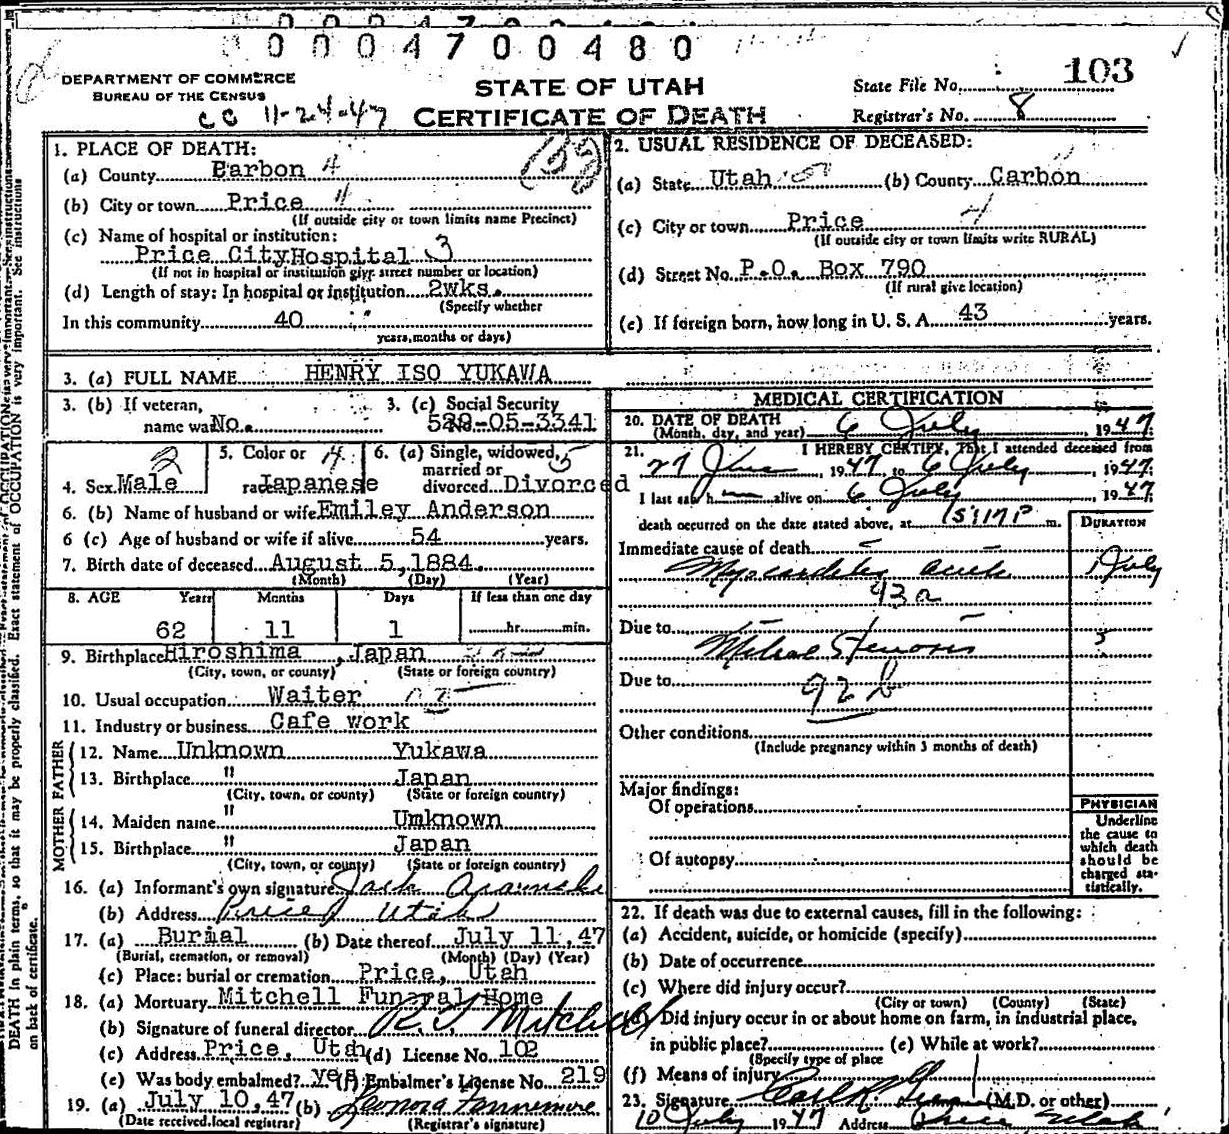 0004700480
DEPARTMENT OF COMMERCE
BUREAU OF THE CENSUS
STATE OF UTAH
CERTIFICATE OF DEATH
State File No. 103
Registrar's No. 8
CC 11-24-47
1. PLACE OF DEATH:
(a) County Barbon 4
(b) City or town Price
(If outside city or town limits name Precinct)
(c) Name of hospital or institution:
Price City Hospital 3
(If not in hospital or institution give street number or location)
(d) Length of stay: In hospital or institution 2wks.
(Specify whether
In this community 40 "
years, months or days)
2. USUAL RESIDENCE OF DECEASED:
(a) State Utah (b) County Carbon
(c) City or town Price 4
(If outside city or town limits write RURAL)
(d) Street No. P.O. Box 790
(If rural give location)
(e) If foreign born, how long in U. S. A. 43 years.
3. (a) FULL NAME HENRY ISO YUKAWA
3. (b) If veteran, name war No.
3. (c) Social Security No. 529-05-3341
4. Sex Male 2
5. Color or race Japanese 4
6. (a) Single, widowed, married or divorced Divorced 5
6. (b) Name of husband or wife Emiley Anderson
6 (c) Age of husband or wife if alive 54 years.
7. Birth date of deceased August 5,1884.
(Month) (Day) (Year)
8. AGE Years Months Days If less than one day
62 11 1 hr. min.
9. Birthplace Hiroshima ,Japan
(City, town, or county) (State or foreign country)
10. Usual occupation Waiter
11. Industry or business Cafe work
FATHER
12. Name Unknown Yukawa
13. Birthplace " Japan
(City, town, or county) (State or foreign country)
MOTHER
14. Maiden name " Umknown
15. Birthplace " Japan
(City, town, or county) (State or foreign country)
16. (a) Informant's own signature Jack
(b) Address Price, Utah
17. (a) Burial (b) Date thereof July 11,47
(Burial, cremation, or removal) (Month) (Day) (Year)
(c) Place: burial or cremation Price, Utah
18. (a) Mortuary Mitchell Funeral Home
(b) Signature of funeral director R. J. Mitchell
(c) Address Price, Utah (d) License No. 102
(e) Was body embalmed? yes (f) Embalmer's License No. 219
19. (a) July 10,47 (b) Leonora Fannemore
(Date received local registrar) (Registrar's signature)
MEDICAL CERTIFICATION
20. DATE OF DEATH
(Month, day, and year) 6 July, 1947
21. I HEREBY CERTIFY, That I attended deceased from
27 June, 1947, to 6 July, 1947
I last saw him alive on 6 July, 1947
death occurred on the date stated above, at m.
DURATION
Immediate cause of death
Myocarditis acute 1 July
93a
Due to
Mitral Stenosis
Due to
92b
Other conditions
(Include pregnancy within 3 months of death)
Major findings:
Of operations
Of autopsy
PHYSICIAN
Underline
the cause to
which death
should be
charged sta-
tistically.
22. If death was due to external causes, fill in the following:
(a) Accident, suicide, or homicide (specify)
(b) Date of occurrence
(c) Where did injury occur?
(City or town) (County) (State)
Did injury occur in or about home on farm, in industrial place,
in public place? (e) While at work?
(Specify type of place
(f) Means of injury
23. Signature (M.D. or other)
10 July 1947 Address Price Utah
DEATH in plain terms, so that it may be properly classified. Exact statement of OCCUPATION is very important. See instructions
on back of certificate.